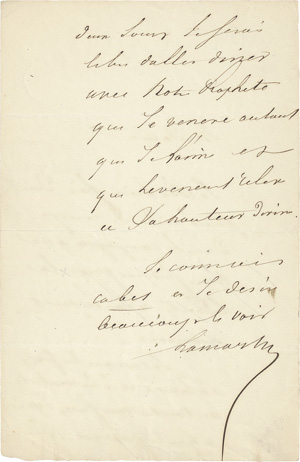 deux jours je serai
libre d'aller diner
avec notre Prophete
que je venere autant
que je l'aime et
que
a sa hauteur divin.
Je connais
cabet et je desire
beaucoup le voir
Lamartin